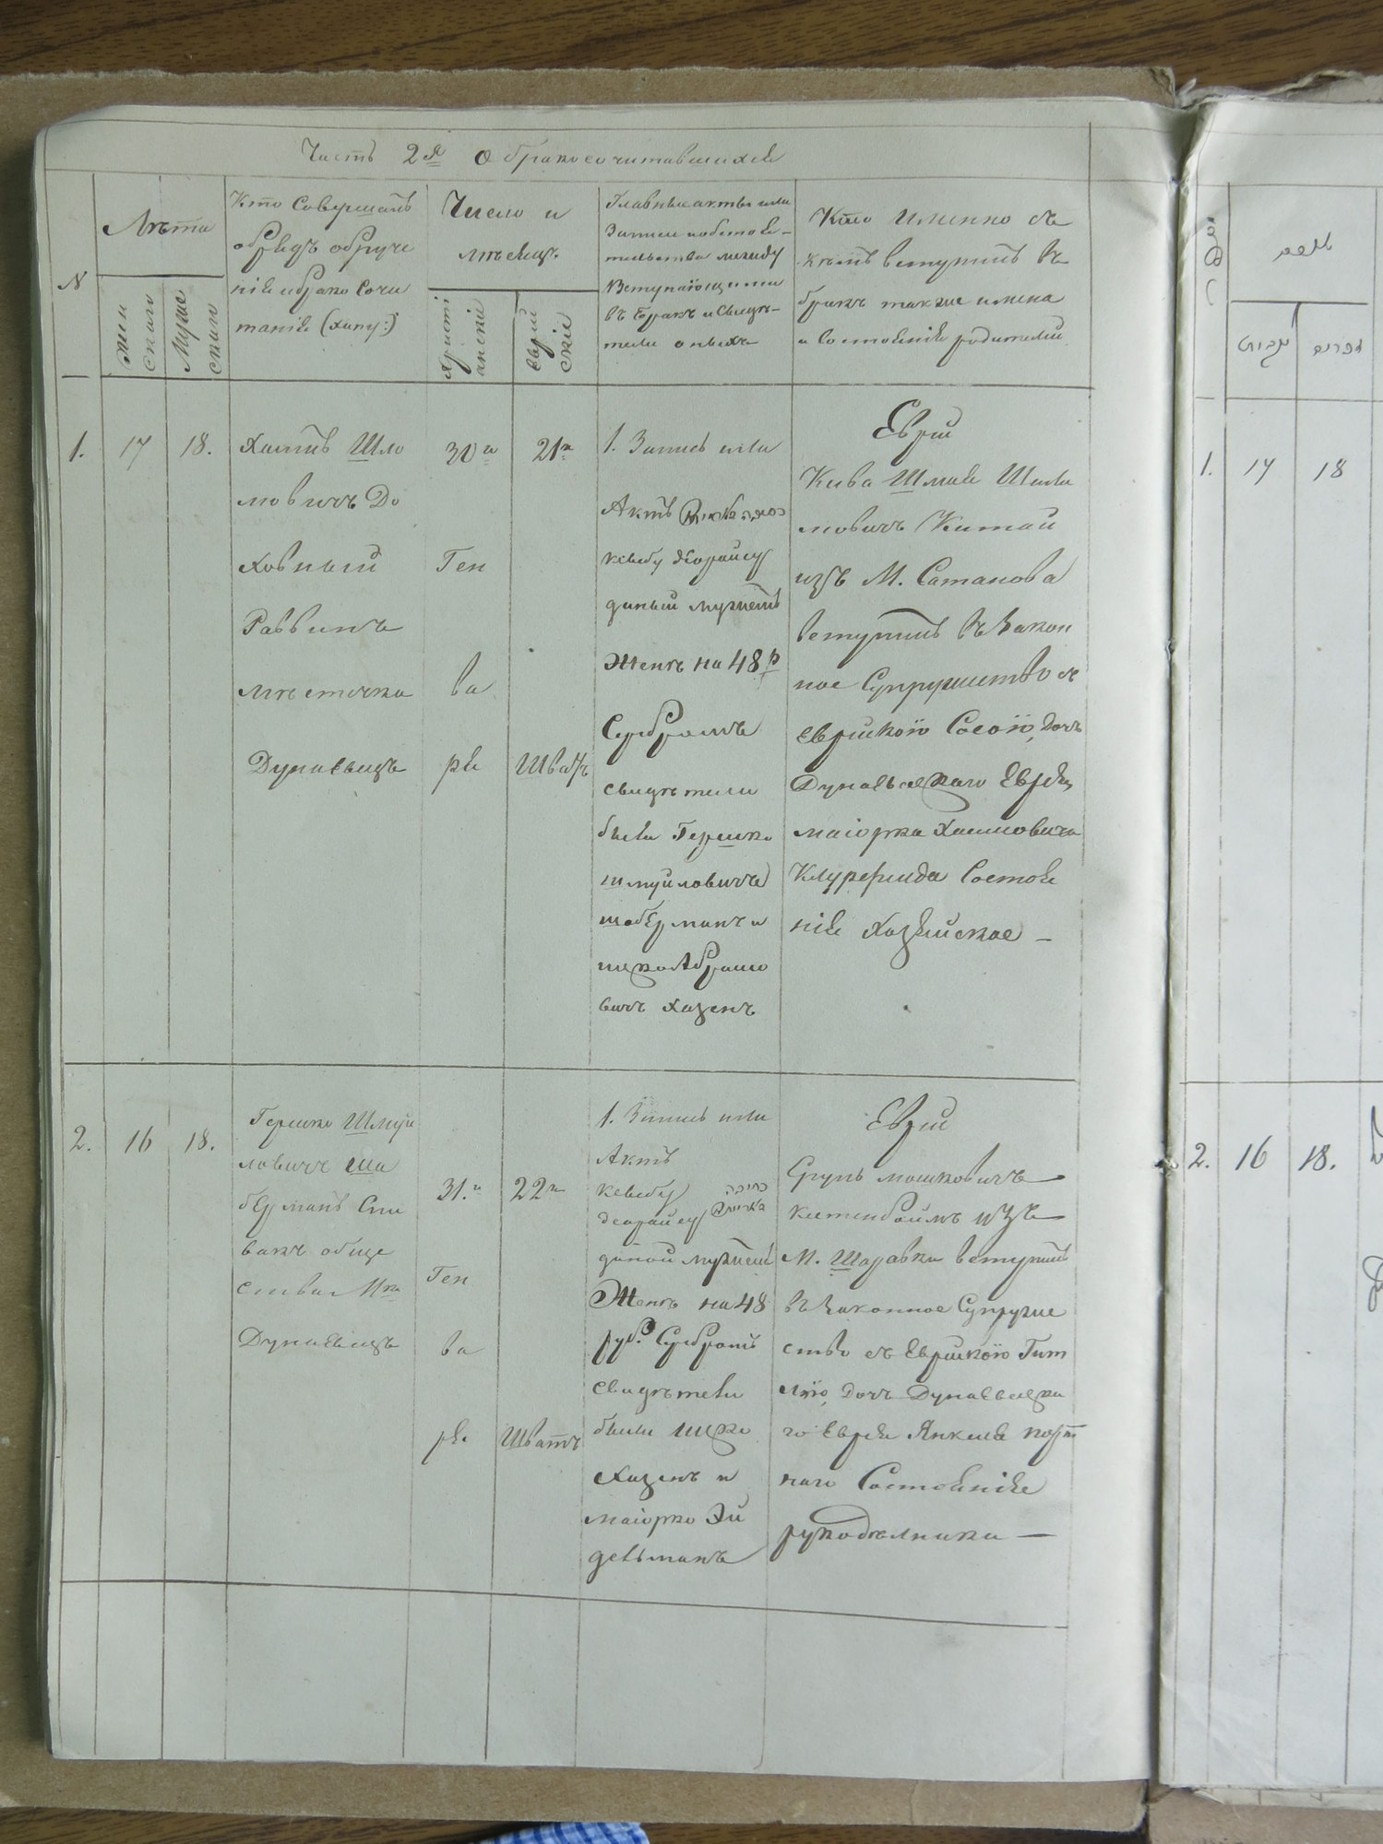 Часть 2я О бракосочитавшихся
N
Лѣта
женскаи
Мужескаи
Кто Совершалъ
обрядъ обруче
нія и брако Сочи
танія (хупу:)
Число и
мѣсяцъ
Христіанскіе
Еврейскіе
Главныи акты или
Записи и обстоя-
тельства между
Вступающими
въ Бракъ и Свидѣ-
тели оныхъ
Кто именно съ
кѣмъ вступилъ въ
бракъ такжe имена
и Состояніе родителей
1.
17
18.
Хаимъ Шло
мовичъ До
ховный
Раввинъ
мѣстечка
Дунаевецъ
30го
Ген
ва
ря
21го
Шватъ
1. Запись или
Актъ
ксивбу деорайсу
даный мужемъ
Женѣ на 48 р
Серебромъ
свидѣтели
были Гершко
шмуйловичъ
шоберманъ и
ицко Абрамо
вичъ Хазенъ
Евреи
Кива Шмая Шли
мовичъ Китай
изъ М. Сатанова
вступилъ въ Закон
ное Супружество съ
Еврейкою Сосою, Дочь
Дунаевецкаго Еврея
маіорка Хаимовича
Клурефелда Состоя
ніе Хазяйское —
2.
16
18.
Гершко Шмуй
ловичъ Шо
берманъ Спи
вакъ обще
ства Мка
Дунаевецъ
31.го
Ген
ва
ря
22го
Шватъ
1. Запись или
Актъ
ксивбу כתובה
деорайсу דאורייתא
даной мужемъ
Женѣ на 48
руб. Серебромъ
свидѣтели
были ицко
Хазенъ и
маіорко Эй
дельманъ
Евреи
Сруль мошковичъ
китенбоймъ изъ
М. Шаравки вступилъ
въ Законное Супруже
ство съ Еврейкою Гит
лею, Дочь Дунаевецка
го Еврея Янкеля порт
наго Состояніе
рукодѣлника —
1.
17
18
2.
16
18.